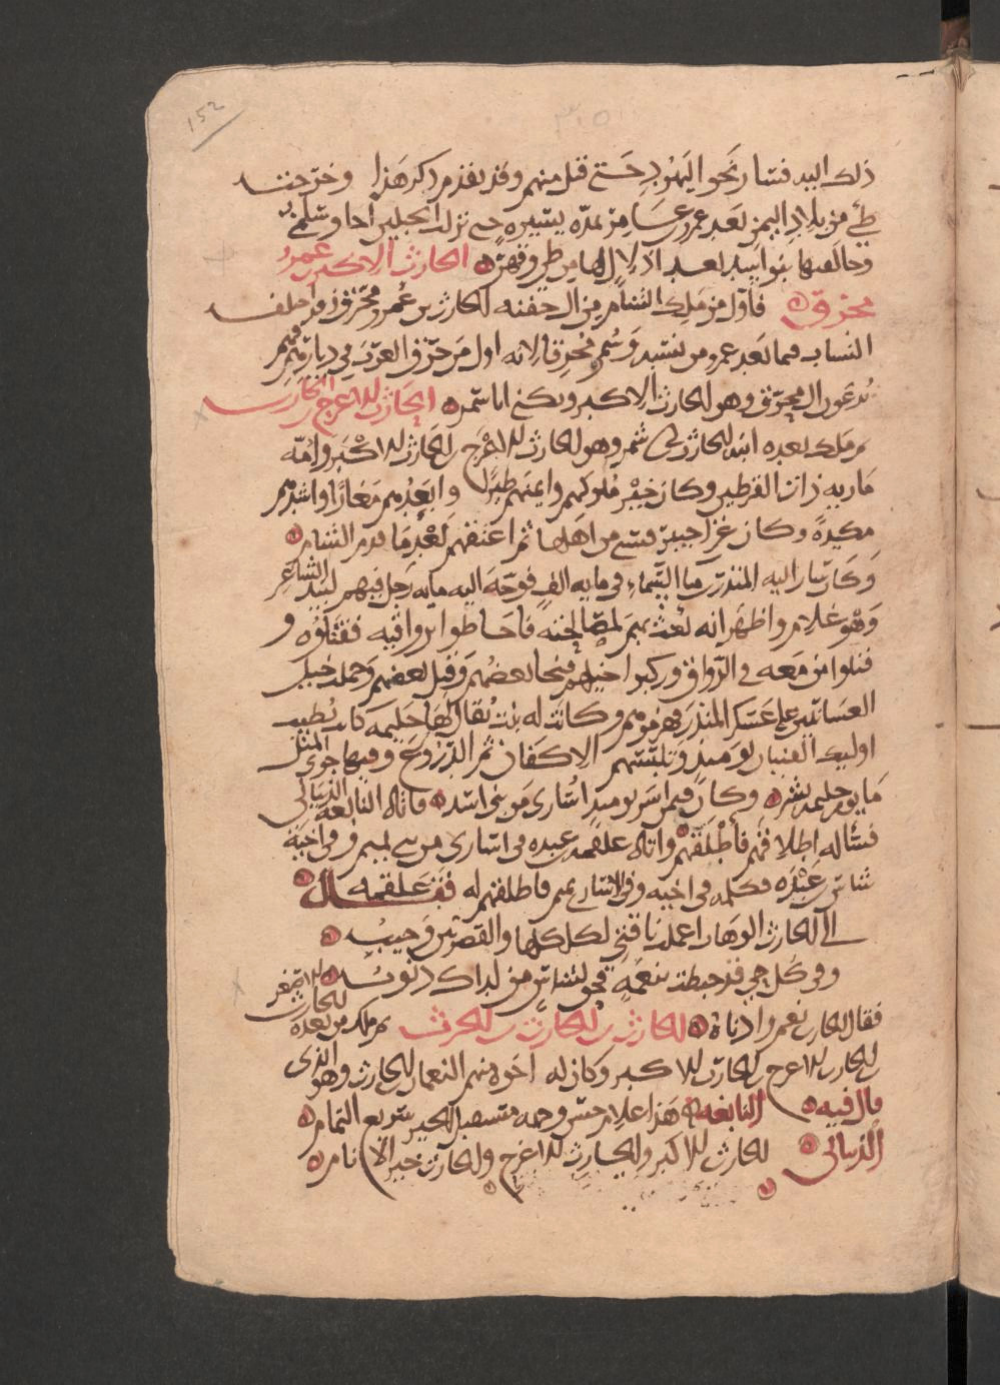 152
ذلك اليه فسار نحو اليهود حتى قتل منهم وقد تقدم ذكر هذا وخرجت
طيّ من بلاد اليمن بعد عمرو عسامر بمدة يسيرة حتى نزلت الجبلين اجا وسلمى
وحالفها بنو اسد بعد اذلال لها من طي وقهر الحارث الاكبر عمرو
محرق فاول من ملك الشام من ال جفنه الحارث بن عمرو محرق وقد اختلف
النساب فيما بعد عمرو من نسبه وسمي محرقا لانه اول من حرق العرب في ديارهم فهم
يدعون ال محرق وهو الحارث الاكبر ويكنى ابا شمر الحارث الاعرج الحارث
ثم ملك بعده ابنه الحارث بن شمر وهو الحارث الاعرج بن الحارث الاكبر وامه
ماريه ذات القرطين وكان خير ملوكهم وايمنهم طيرا وابعدهم مغارا واشدهم
مكيدة وكان غزا خيبر فسبى من اهلها ثم اعتقهم بعد ما قدم الشام
وكان سار اليه المنذر بن ما السماء في مايه الف فوجه اليه مايه رجل فيهم لبيد الشاعر
وهو غلام واظهر انه بعث بهم لمصالحته فاحاطوا برواقيه فقتلوه و
قتلوا من معه في الرواق وركبوا خيلهم فنجا بعضهم وقتل بعضهم وحملت خيل
الغسانيين على عسكر المنذر فهزموهم وكانت له بنت يقال لها حليمه كانت تطيب
اوليك الفتيان يومئذ وتلبسهم الاكفان ثم الدروع وفيها جرى المثل
ما يوم حليمه بسر وكان فيمن اسر يوميذ اسارى من بني اسد فاتاه النابغه الذبياني
فساله اطلاقهم فاطلقهم واتاه علقمه بن عبده في اسارى من بني تميم وفي اخيه
شاس بن عبده فكلمه في اخيه وفي الاسارى تميم فاطلقهم له ففيه علقمه قال
الى الحارث الوهاب اعملت ناقتي لكلكلها والقصريين وجيب
وفي كل حي قد خبطت بنعمة فحق لشاس من نداك ذنوب
فقال الحارث نعم واذنبة الحارث بن الحارث بن الحرث ثم ملك من بعده
الحارث الاصغر
بن الحارث الاعرج بن الحارث الاكبر وكان له اخوه منهم النعمان بن الحارث وهو الذي
قال فيه النابغه هذا غلام حسن وجهه مستقبل الخير سريع التمام
الذبياني للحارث الاكبر والحارث الاعرج والحارث خير الانام